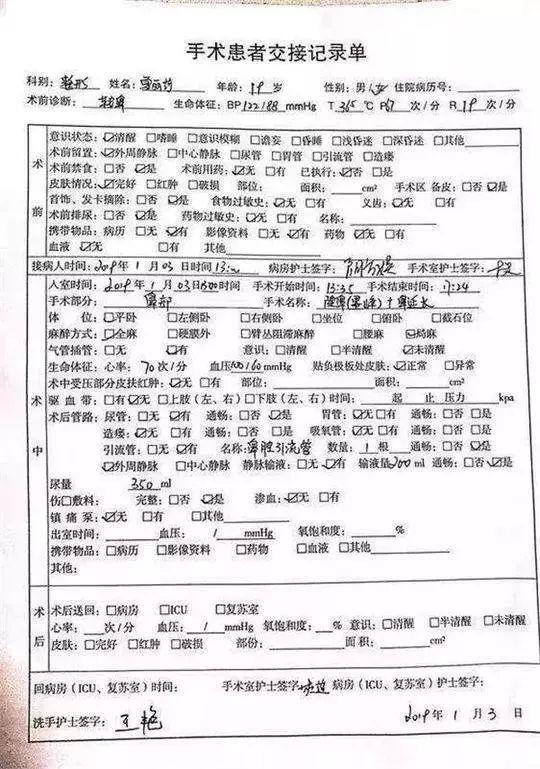 手术患者交接记录单
科别：整形 姓名： 年龄：19 岁 性别：男/女 住院病历号：
术前诊断： 生命体征：BP 122/88 mmHg T 365 ℃ P 次/分 R 19 次/分
术前
意识状态：☑清醒 □嗜睡 □意识模糊 □谵妄 □昏睡 □浅昏迷 □深昏迷 □其他
术前留置：☑外周静脉 □中心静脉 □尿管 □胃管 □引流管 □造瘘
术前禁食：□否 ☑是 术前用药：☑无 □有 已执行：☑否 □是
皮肤情况：☑完好 □红肿 □破损 部位： 面积： cm² 手术区备皮：□否 ☑是
首饰、发卡摘除：□否 ☑是 食物过敏史：☑无 □有 义齿：☑无 □有
术前排尿：□否 ☑是 药物过敏史：☑无 □有 名称：
携带物品：病历 □无 ☑有 影像资料 □无 ☑有 药物 ☑无 □有
血液 ☑无 □有 其他
接病人时间：2019 年 1 月 03 日时间 病房护士签字： 手术室护士签字：
术中
入室时间：2019 年 1 月 03 日 手术开始时间：13:35 手术结束时间：17:24
手术部分：鼻部 手术名称：隆鼻 + 鼻延长
体 位：☑平卧 □左侧卧 □右侧卧 □坐位 □俯卧 □截石位
麻醉方式：☑全麻 □硬膜外 □臂丛阻滞麻醉 □腰麻 ☑局麻
气管插管：□无 ☑有 意识：□清醒 □半清醒 ☑未清醒
生命体征：心率：70 次/分 血压100/60 mmHg 贴负极板处皮肤：☑正常 □异常
术中受压部分皮肤红肿：☑无 □有 部位： 面积： cm²
驱 血 带：□有 ☑无 □上肢（左、右）□下肢（左、右）时间： 起 止 压力 kpa
术后管路：尿管：□无 ☑有 通畅：□否 ☑是 胃管：☑无 □有 通畅：□否 □是
造瘘：☑无 □有 通畅：□否 □是 吸氧管：☑无 □有 通畅：□否 □是
引流管：□无 ☑有 名称：鼻腔引流管 数量：1 根 通畅：□否 ☑是
☑外周静脉 □中心静脉 静脉输液：□无 ☑有 输液量 ml 通畅：□否 ☑是
尿量 350 ml
伤口敷料： 完整：□否 ☑是 渗血：☑无 □有
镇 痛 泵：☑无 □有 □其他
出室时间： 血压： / mmHg 氧饱和度： %
携带物品：□病历 □影像资料 □药物 □血液 □其他
其他：
术后
术后送回：□病房 □ICU □复苏室
心率： 次/分 血压： / mmHg 氧饱和度： % 意识：□清醒 □半清醒 □未清醒
皮肤：□完好 □红肿 □破损 部份： 面积： cm²
回病房（ICU、复苏室）时间： 手术室护士签字 病房（ICU、复苏室）护士签字：
洗手护士签字：王艳 2019 年 1 月 3 日